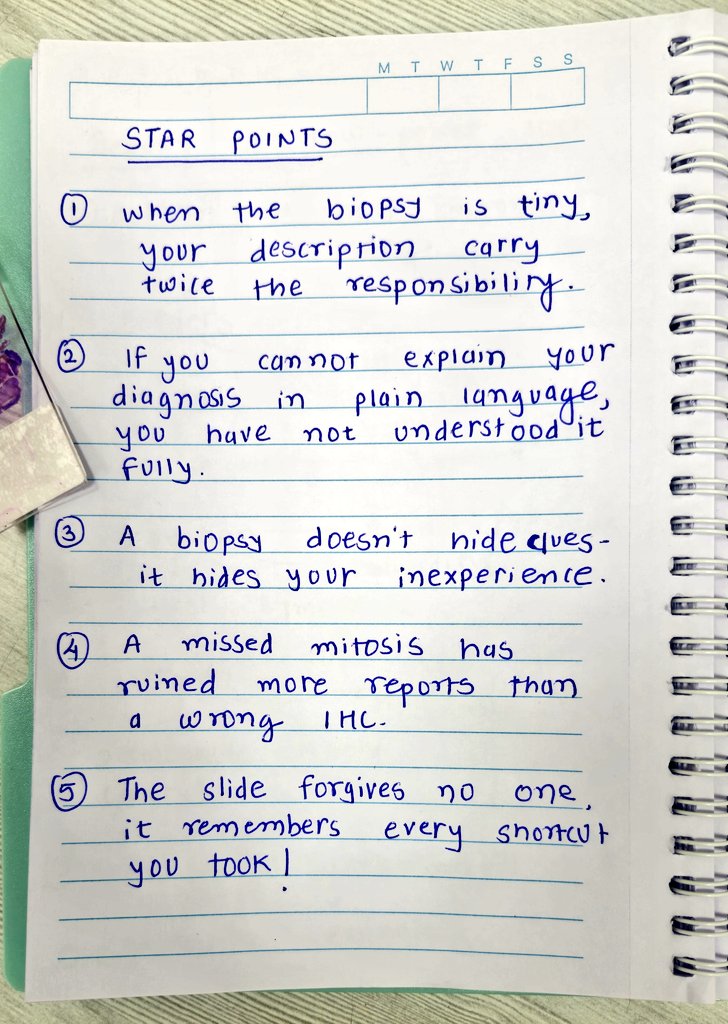 M T W T F S S
STAR POINTS
① when the biopsy is tiny,
your description carry
twice the responsibility.
② If you cannot explain your
diagnosis in plain language,
you have not understood it
fully.
③ A biopsy doesn't hide clues-
it hides your inexperience.
④ A missed mitosis has
ruined more reports than
a wrong IHC.
⑤ The slide forgives no one,
it remembers every shortcut
you took!